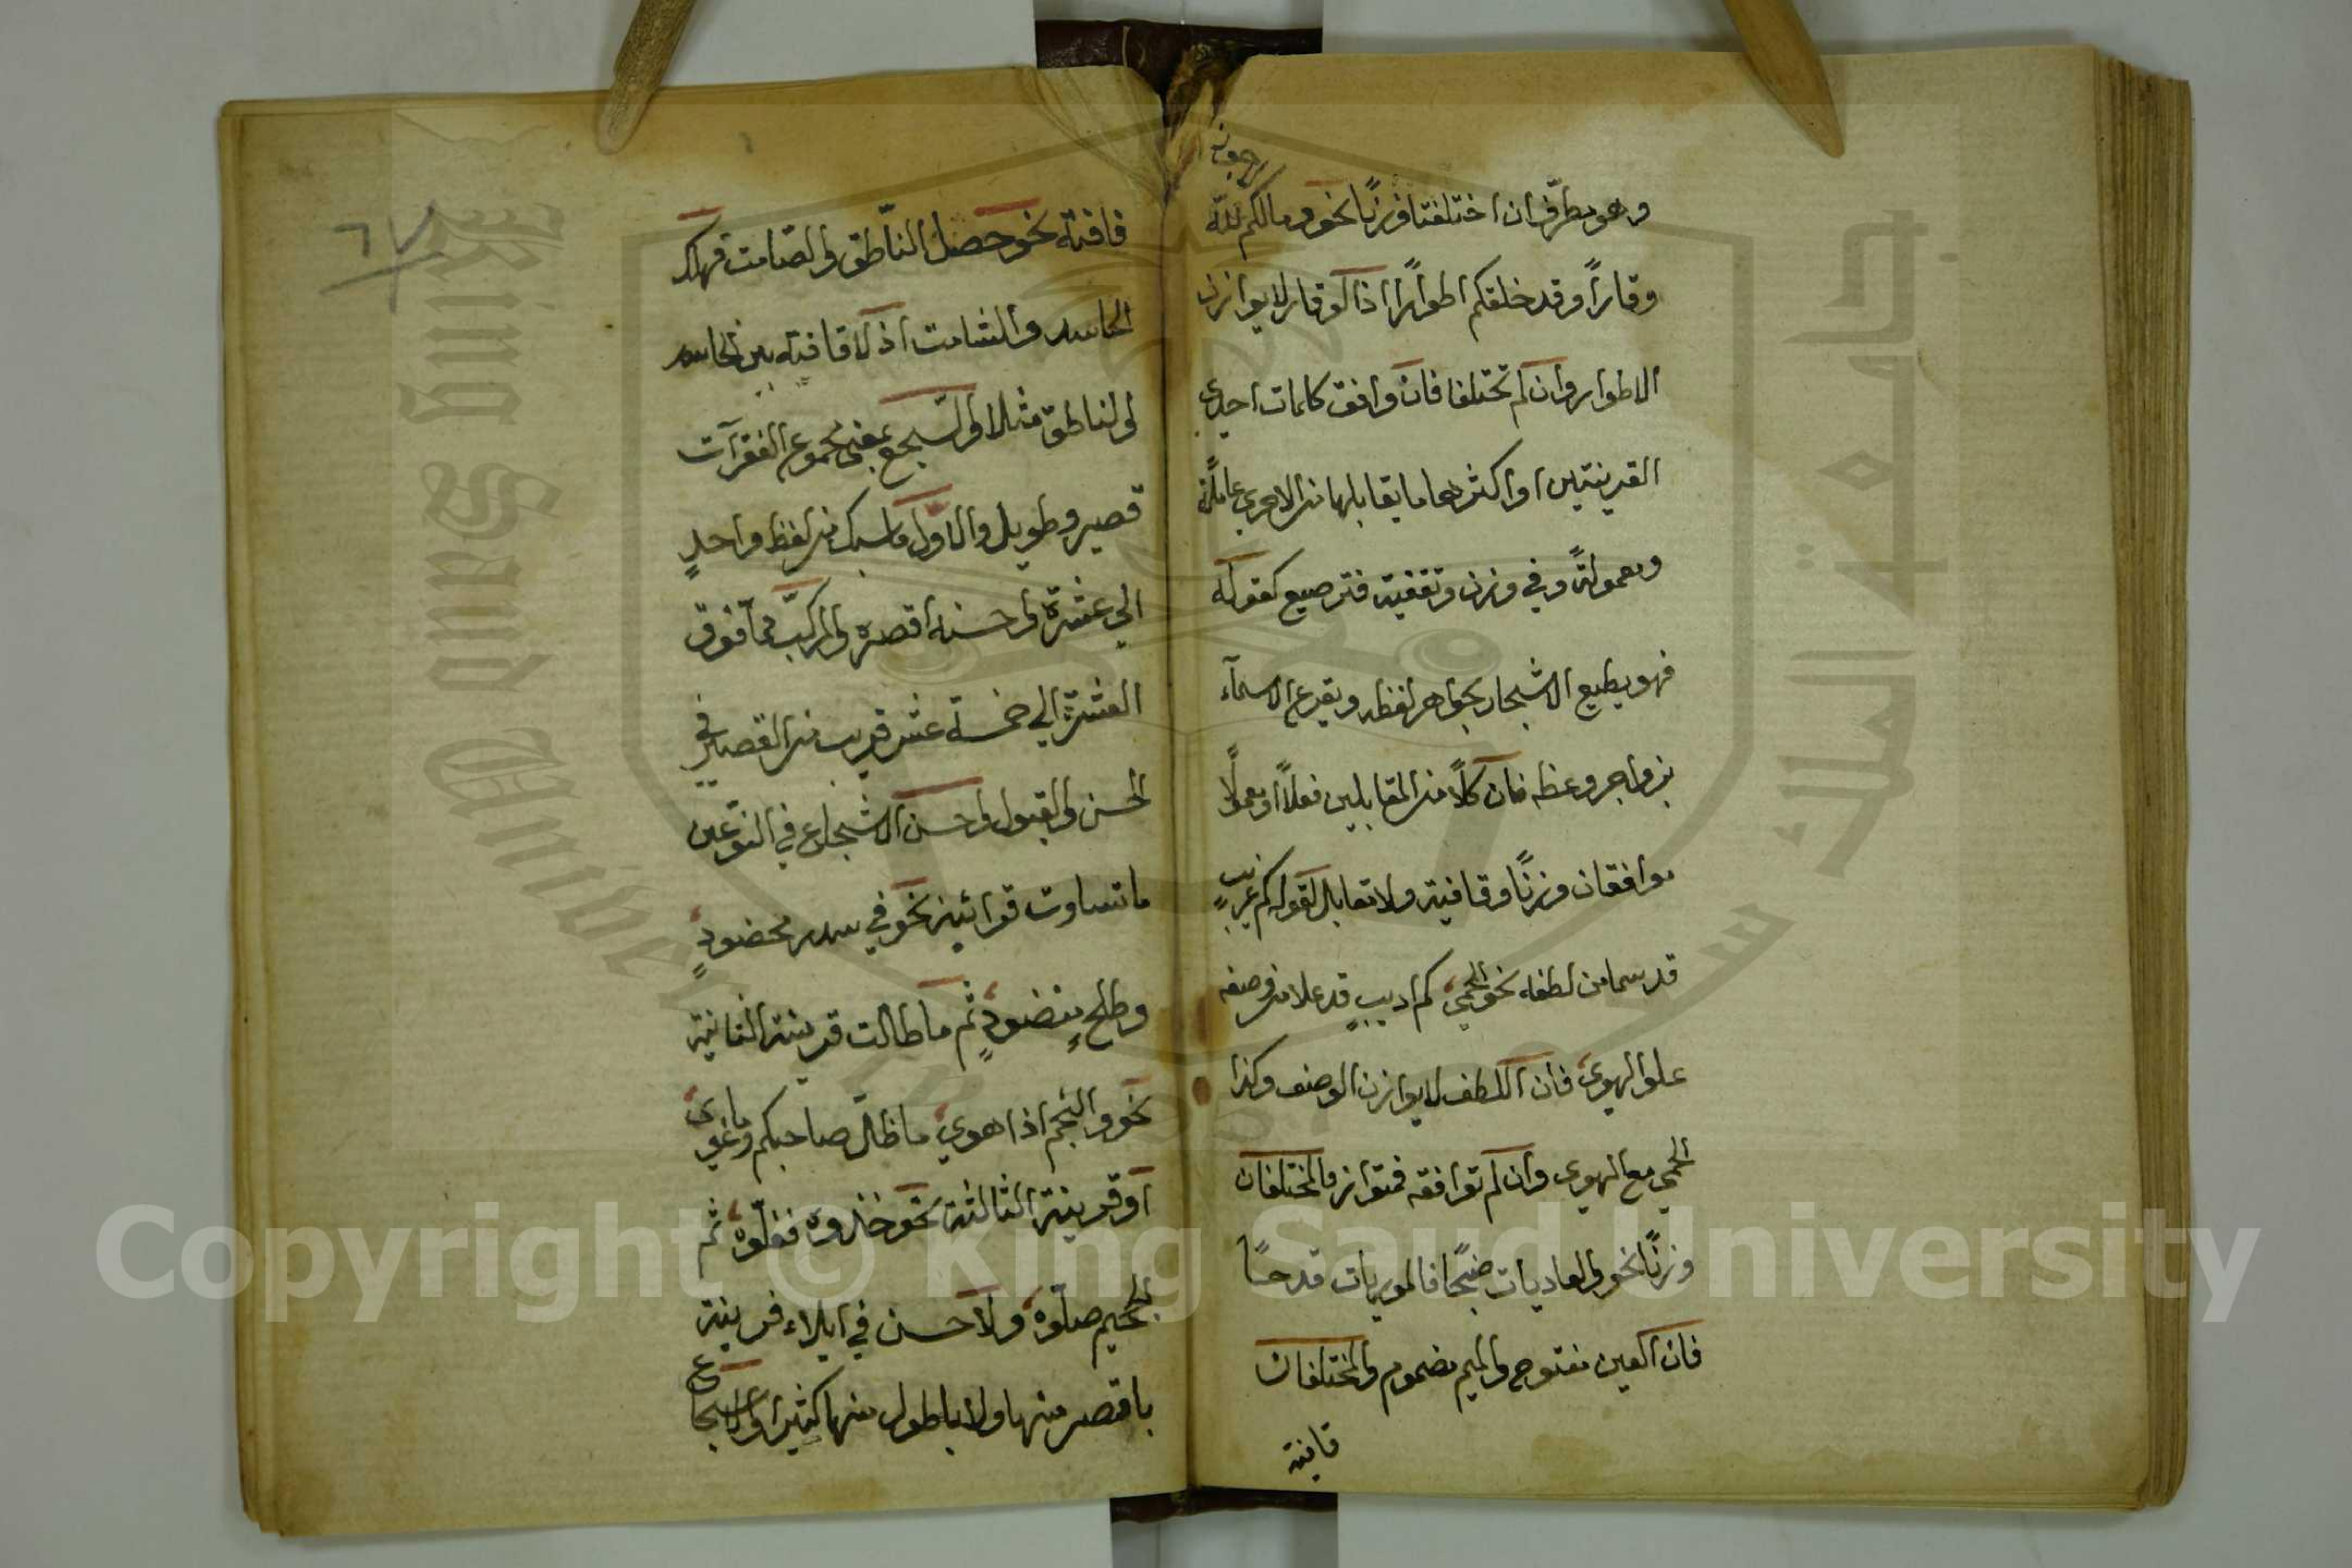 وهو مطرّف ان اختلفتا وزنًا نحو ما لكم لا ترجون لله
وقارًا وقد خلقكم اطوارًا اذ الوقار لا يوازن
الاطوار وان لم تختلفا فان وافق كلمات احدى
القرينتين او اكثرها ما يقابلها من الاخرى عاملة
ومعمولة وفي وزن وتقفية فترصيع كقوله
فهو يطبع الاسجاع بجواهر لفظه ويقرع الاسماع
بزواجر وعظه فان كلًا من المقابلين فعلًا او معمولًا
موافقان وزنًا وقافية ولا تقابل لقولهم كم غريب
قد سما من لطفه نحو الحمى كم اديب قد علا من وصفه
علو الهوى فان اللطف لا يوازن الوصف وكذا
الحمى مع الهوى وان لم توافقه فمتواز والمختلفان
وزنًا نحو والعاديات ضبحًا فالموريات قدحًا
فان العين مفتوح والميم مضموم والمختلفان
قافية
٦٧
قافية نحو حصل الناطق والصامت فهلك
الحاسد والشامت اذ لا قافية بين الحاسد
والناطق مثلا والسجع بمعنى مجموع الفقرات
قصير وطويل والاول ما سبك من لفظ واحدٍ
الى عشرة واحسنه اقصره والمركب مما فوق
العشرة الى خمسة عشر قريب من القصير في
الحسن والقبول واحسن الاسجاع في النوعين
ما تساوت قرائنه نحو في سدر مخضودٍ
وطلحٍ منضودٍ ثم ما طالت قرينته الثانية
نحو والنجم اذا هوى ما ضل صاحبكم وما غوى
او قرينته الثالثة نحو خذوه فغلّوه ثم
الجحيم صلّوه ولا حسن في ايلاء قرينة
باقصر منها ولا باطول منها كثيرا والاسجاع
Copyright © King Saud University